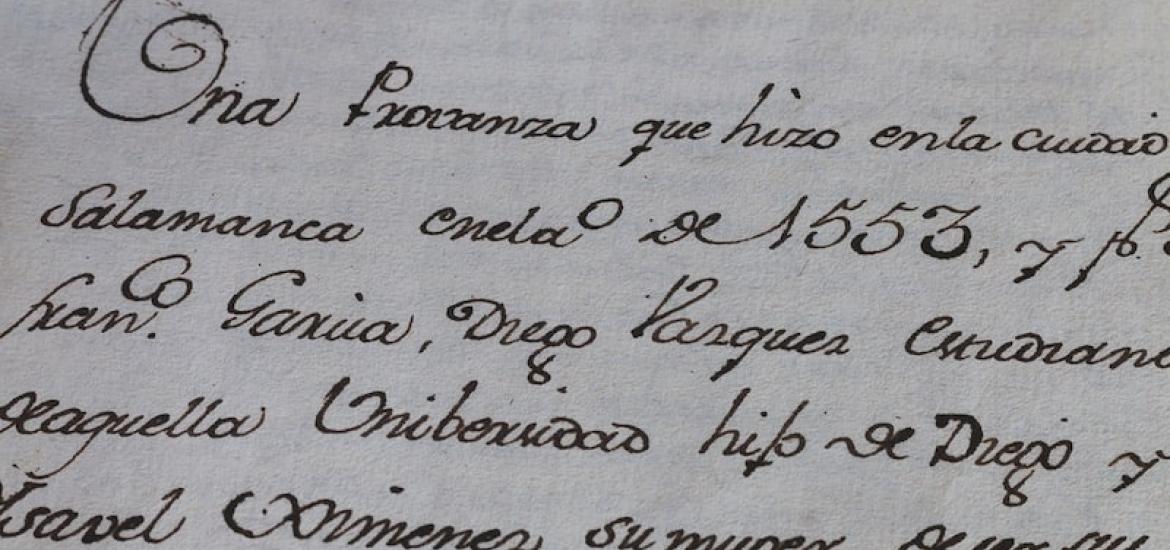 Una Provanza que hizo enla ciudad
Salamanca enel aº de 1553, y pº
franco. Garcia, Diego Vazquez Estudian
deaquella Unibersidad hijo de Diego y
Ysavel Ximenez su muger